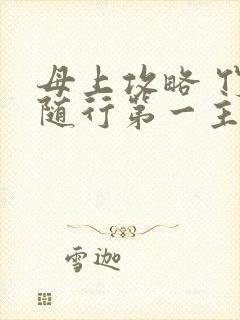 母上攻略
随行第一主
雪迦